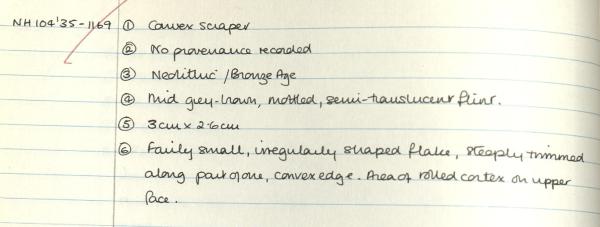 NH 104'35-1169 ① Convex scraper
② No provenance recorded
③ Neolithic / Bronze Age
④ Mid grey-brown, mottled, semi-translucent flint.
⑤ 3cm x 2.6cm
⑥ Fairly small, irregularly shaped flake, steeply trimmed
along part of one, convex edge. Area of rolled cortex on upper
face.